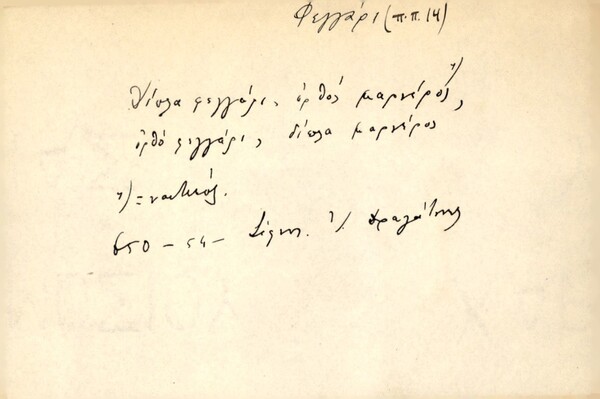 Φεγγάρι (π.π. 14)
Δίπλα φεγγάρι, ορθός μαρνέρος ¹),
ορθό φεγγάρι, δίπλα μαρνέρος
¹) = ναυτικός.
650 - 54 - Δραγάτσης